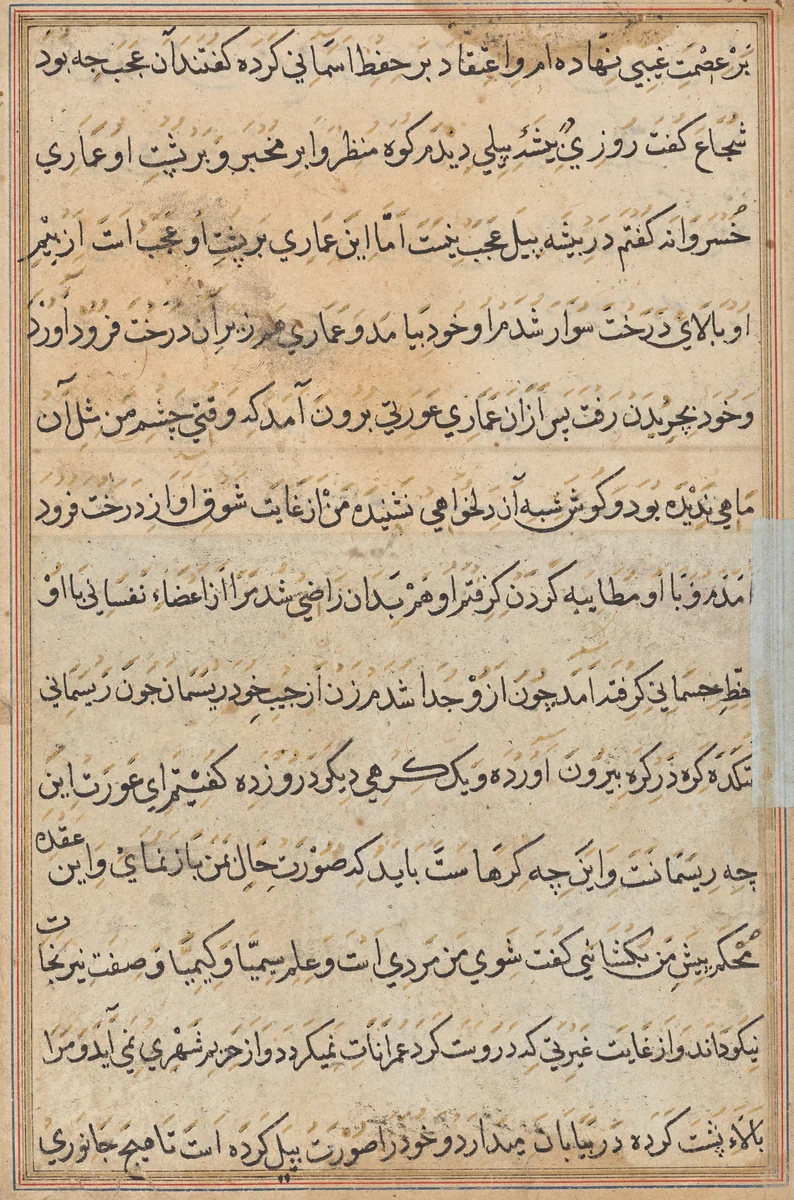 بَرْ عِصْمَتِ غیبي نهاده ام و اعتقاد بر حفظ اسماني کرده کفتند آن عجب جه بود
شجاع کفت روزي پیلي دیدم کوه منظر و ابر مخبر و بر پشت او عماري
خسروانه کفتم در بیشه پیل عجب نیست امّا این عماري بر پشت او عجب است از بیم
او بالاي درخت سوار شدم او خود بیامد و عماري در زیر آن درخت فرود آورد
و خود بچریدن رفت پس از ان عماري عورتي برون آمد که وقتي چشم من مثل آن
ماهي ندیده بود و کوش شبه آن دلخواهي نشنیده من از غایت شوق او از درخت فرود
امدم و با او مطایبه کردن کرفتم او هم بدان راضي شد مرا از اعضاء نفساني با او
حظ جسماني کرفته آمد چون از و جدا شدم زن از جیب خود ریسمان جون ریسماني
کره در کره بیرون آورده و یک کرهي دیکر درو زده کفتم اي عورت این
چه ریسمانست و این چه کرهاست باید که صورت حال بمن باز نماي و این عقده
محکم پیش من بکشائي کفت شوي من مردي است و علم سیمیا و کیمیا و صفت نیرنجات
نیکو داند و از غایت غیرتي که دروست کرد عمرانات نمیکردد و از حریم شهري نمي آید و مرا
بالاء پشت کرده در بیابان میدارد و خود را صورت پیل کرده است تا هیچ جانوري